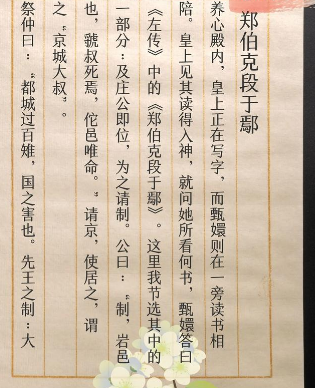 郑伯克段于鄢
养心殿内，皇上正在写字，而甄嬛则在一旁读书相
陪。皇上见其读得入神，就问她所看何书，甄嬛答曰
《左传》中的《郑伯克段于鄢》。这里我节选其中的
一部分：及庄公即位，为之请制。公曰：“制，岩邑
也，虢叔死焉，佗邑唯命。”请京，使居之，谓
之“京城大叔”。
祭仲曰：“都城过百雉，国之害也。先王之制：大